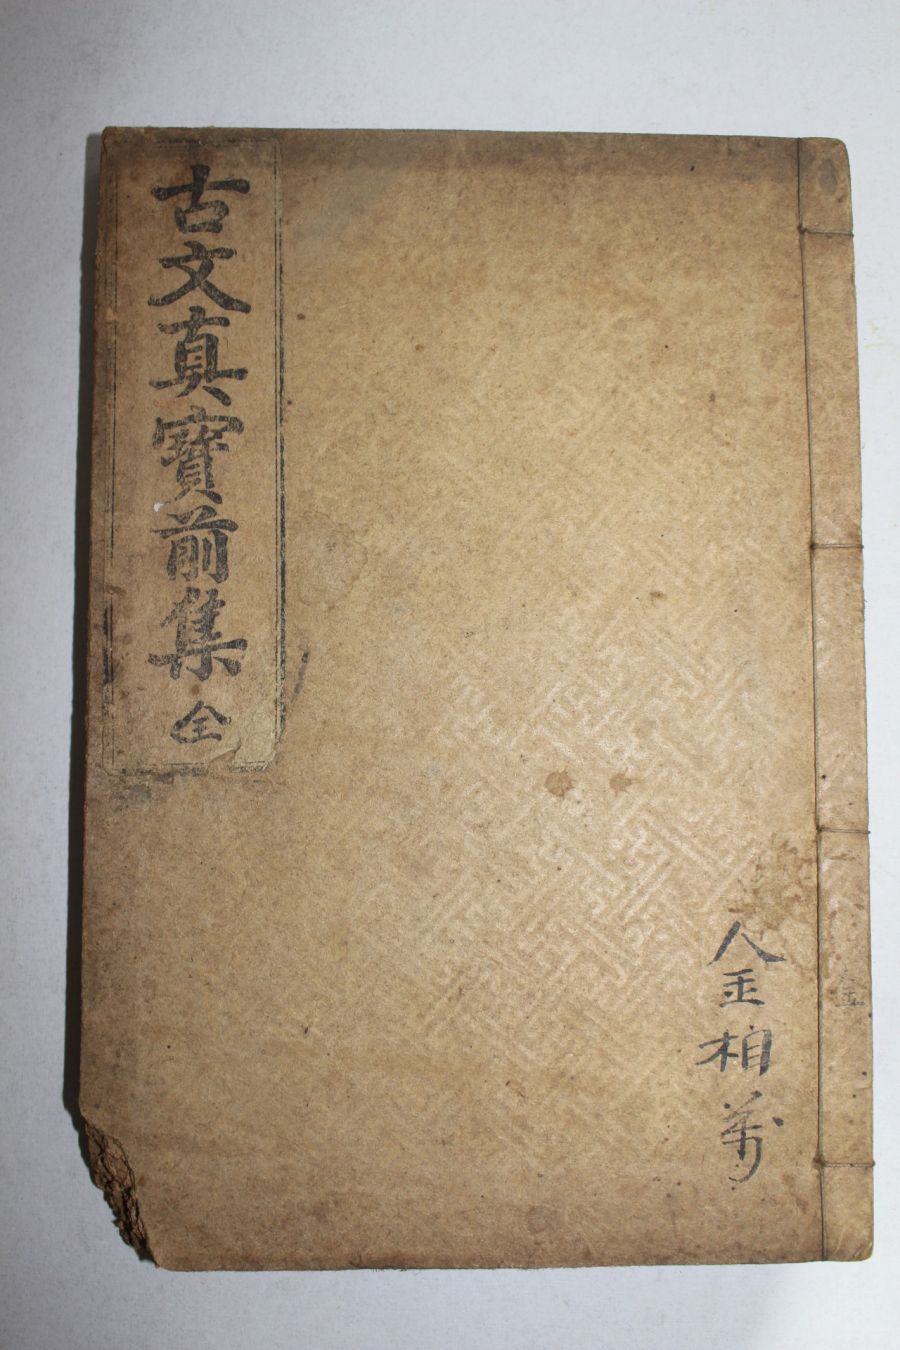 金
金相萬
古文真寶前集 全